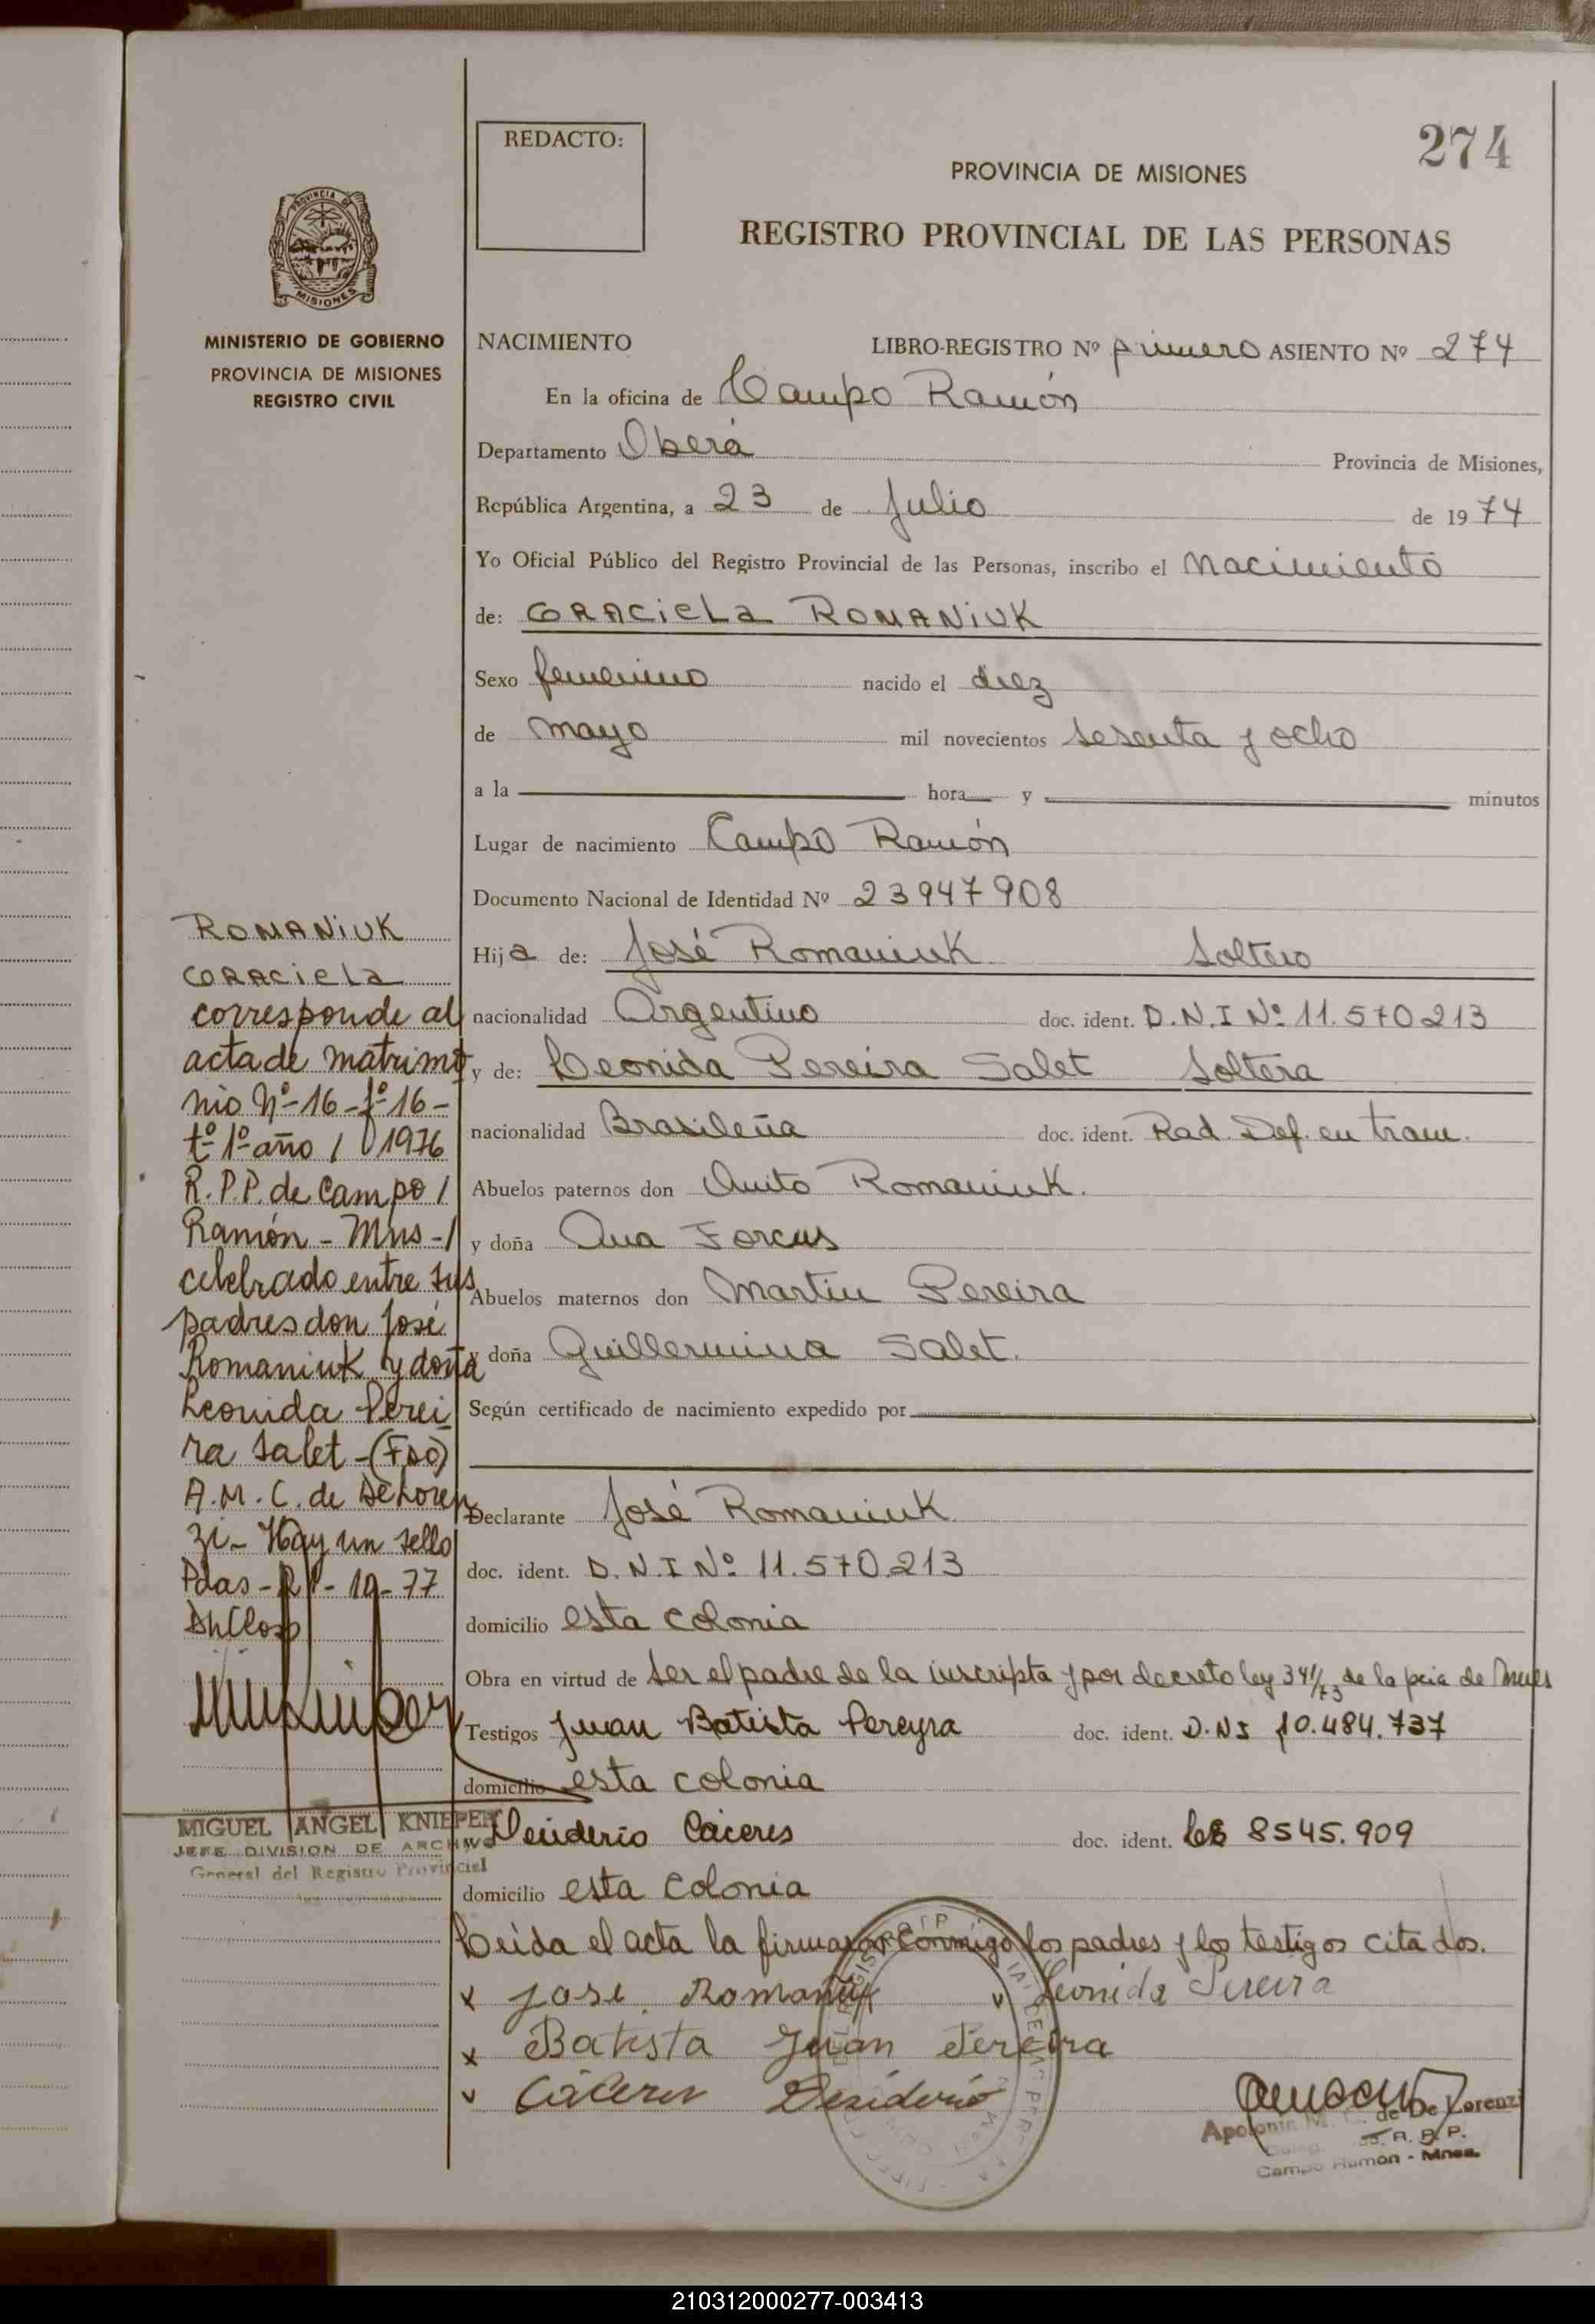 274
REDACTO:
PROVINCIA DE MISIONES
REGISTRO PROVINCIAL DE LAS PERSONAS
PROVINCIA DE
MISIONES
MINISTERIO DE GOBIERNO
PROVINCIA DE MISIONES
REGISTRO CIVIL
NACIMIENTO LIBRO-REGISTRO Nº primero ASIENTO Nº 274
En la oficina de Campo Ramón
Departamento Oberá Provincia de Misiones,
República Argentina, a 23 de Julio de 1974
Yo Oficial Público del Registro Provincial de las Personas, inscribo el Nacimiento
de: GRACIELA ROMANIUK
Sexo femenino nacido el diez
de mayo mil novecientos sesenta y ocho
a la hora y minutos
Lugar de nacimiento Campo Ramón
Documento Nacional de Identidad Nº 23947908
Hija de: José Romaniuk Soltero
nacionalidad Argentino doc. ident. D.N.I Nº 11.570213
y de: Leonida Pereira Salet Soltera
nacionalidad Brasileña doc. ident. Rad. Def. en tram.
Abuelos paternos don Romaniuk.
y doña Ana Forcus
Abuelos maternos don Martin Pereira
y doña Guillermina Salet.
Según certificado de nacimiento expedido por
Declarante José Romaniuk.
doc. ident. D.N.I Nº 11.570.213
domicilio esta colonia
Obra en virtud de ser el padre de la inscripta y por decreto ley 341/73 de la pcia de
Testigos Juan Batista Pereyra doc. ident. D.NI 10.484.737
domicilio esta colonia
Desiderio Cáceres doc. ident. 8545.909
domicilio esta colonia
Leída el acta la firman conmigo los padres y los testigos citados.
x Jose. Romaniuk v Leonida Pereira
x Batista Juan Pereira
v Cáceres Desiderio
de De Lorenzi
R. P. P.
Campo Ramón - Mnes.
ROMANIUK
GRACIELA
corresponde al
acta de matrimo
nio Nº-16-fº16-
tº-1º año / 1976
R.P.P. de Campo /
Ramón - Mns -/
celebrado entre sus
padres don José
Romaniuk y doña
Leonida Perei
ra Salet -(Fdo)
A.M.C. de De Loren
zi- Hay un sello
Pdas- 10-77
MIGUEL ANGEL KNIEPER
JEFE DIVISION DE ARCHIVO
General del Registro Provincial
210312000277-003413